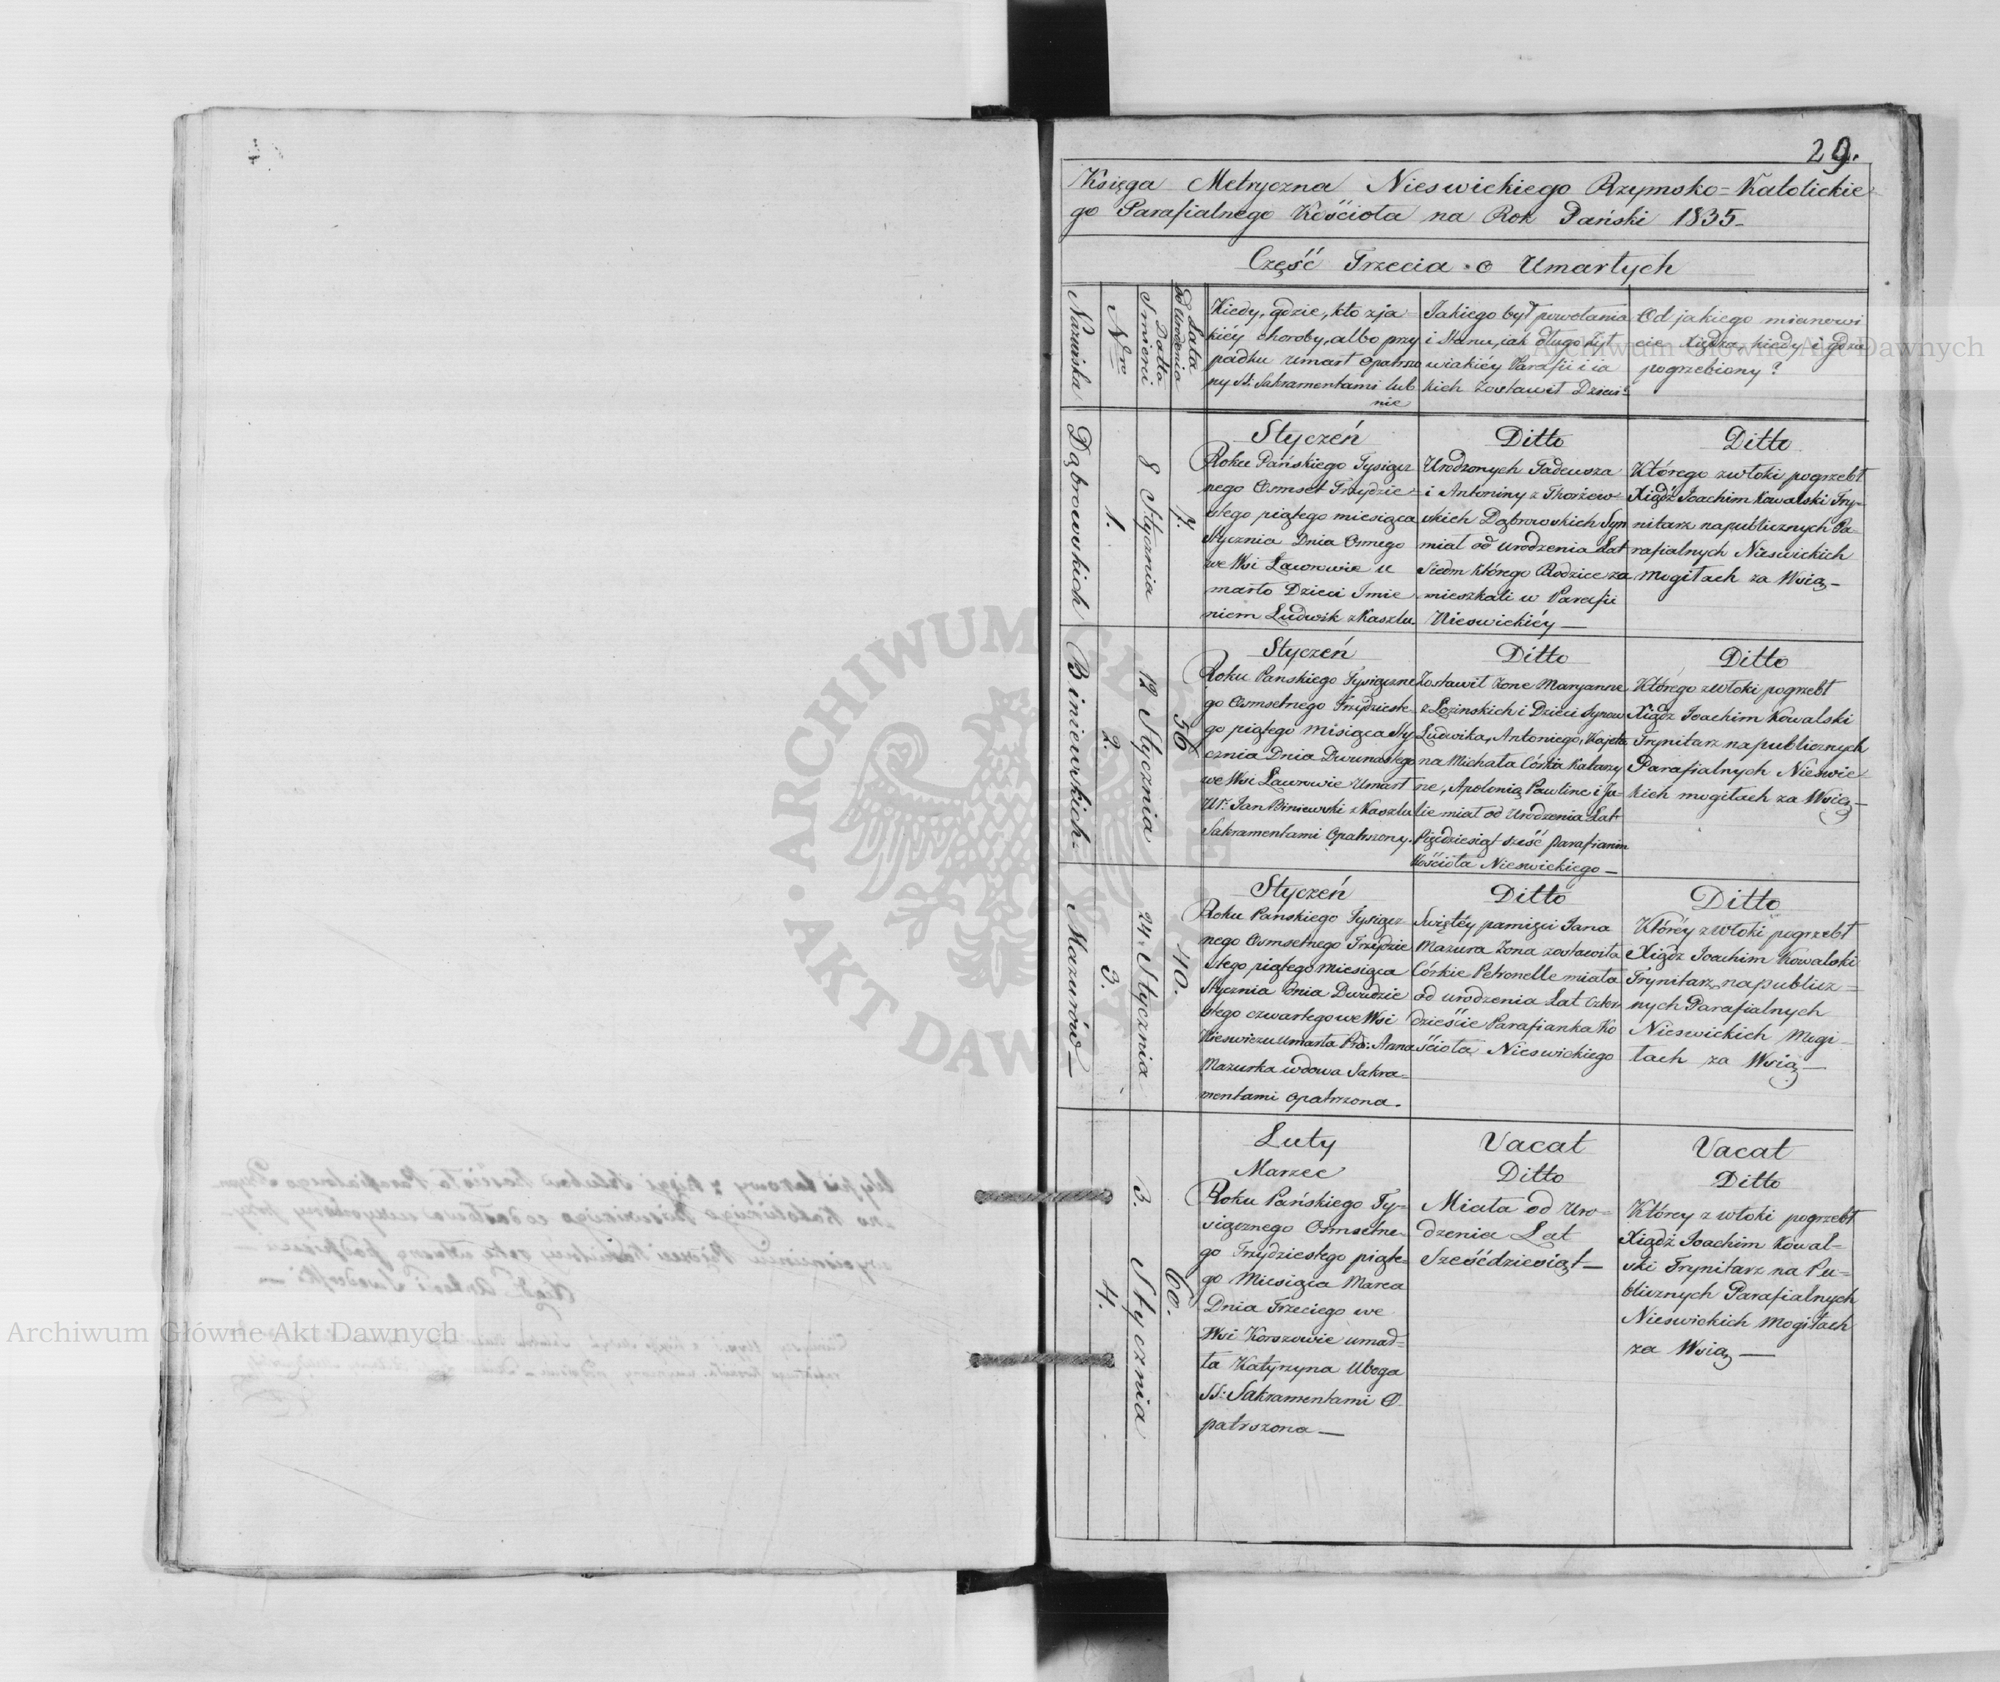 29.
Księga Metryczna Nieswickiego Rzymsko=Katolickie
go Parafialnego Kościoła na Rok Pański 1835_
Część Trzecia o Umarłych
Nazwiska
Nro
Datta Smierci
Lata od Urodzenia
Kiedy, gdzie, kto z ja=
kiéy choroby, albo przy
padku umarł opatrzo
ny SS: Sakramentami lub
nie
Jakiego był powołania
i Stanu, jak długo żył
w jakiéy Parafii i ja
kich zostawił Dzieci?
Od jakiego mianowi
cie Xiędza, kiedy i gdzie
pogrzebiony?
Dąbrowskich
1.
8 Stycznia
7.
Styczeń
Roku Pańskiego Tysiącz
nego Osmset Trzydzie=
stego piątego miesiąca
Stycznia Dnia Osmego
we Wsi Ławrowie u
marło Dzieci Imie
niem Ludwik z Kaszlu.
Ditto
Urodzonych Tadeusza
i Antoniny z Thorżew=
skich Dąbrowskich Syn
miał od urodzenia Lat
Siedm którego Rodzice za
mieszkali w Parafii
Nieswickiéy—
Ditto
Którego zwłoki pogrzebł
Xiądz Joachim Kowalski Try=
nitarz na publicznych Pa=
rafialnych Nieswickich
Mogiłach za Wsią—
Biniewskich-
2.
12 Stycznia
56
Styczeń
Roku Panskiego Tysiączne
go Osmsetnego Trzydzieste
go piątego Misiąca Sty
cznia Dnia Dwunastego
we Wsi Ławrowie Umarł
Ur: Jan Biniewski z Kaszlu
Sakramentami Opatrzony.
Ditto
Zostawił Żone Maryanne
z Łozinskich i Dzieci Synow
Ludwika, Antoniego, Kajeta
na Michała Córkia Katarzy
ne, Apolonią Pawline i Ju=
lie miał od Urodzenia Lat
Pięćdziesiąt sześć parafianin
Kościoła Nieswickiego—
Ditto
Którego zwłoki pogrzebł
Xiądz Joachim Kowalski
Trynitarz na publicznych
Parafialnych Nieswic=
kich mogiłach za Wsią—
Mazurów—
3.
24 Stycznia
40.
Styczeń
Roku Pańskiego Tysiącz=
nego Osmsetnego Trzydzie
stego piątego Miesiąca
Stycznia Dnia Dwudzie
stego czwartego we Wsi
Nieswiczu umarła Anna
Mazurka wdowa Sakra=
mentami opatrzona.
Ditto
Swiętéy pamięci Jana
Mazura Żona zostawiła
Córkie Petronelle miała
od urodzenia Lat Czter
dzieście Parafianka Ko
ścioła Nieswickiego
Ditto
Któréy zwłoki pogrzebł
Xiądz Joachim Kowalski
Trynitarz na publicz=
nych Parafialnych
Nieswickich Mogi=
łach za Wsią—
4.
3. Stycznia
60.
Luty
Marzec
Roku Pańskiego Ty=
siącznego Osmsetne=
go Trzydziestego piąte=
go Miesiąca Marca
Dnia Trzeciego we
Wsi Korszowie umar=
ła Katyrzyna Uboga
SS: Sakramentami O
patrzona—
Vacat
Ditto
Miała od Uro=
dzenia Lat
Sześćdziesiąt—
Vacat
Ditto
Któréy zwłoki pogrzebł
Xiądz Joachim Kowal=
ski Trynitarz na Pu=
blicznych Parafialnych
Nieswickich Mogiłach
za Wsią—
Archiwum Główne Akt Dawnych
Archiwum Główne Akt Dawnych